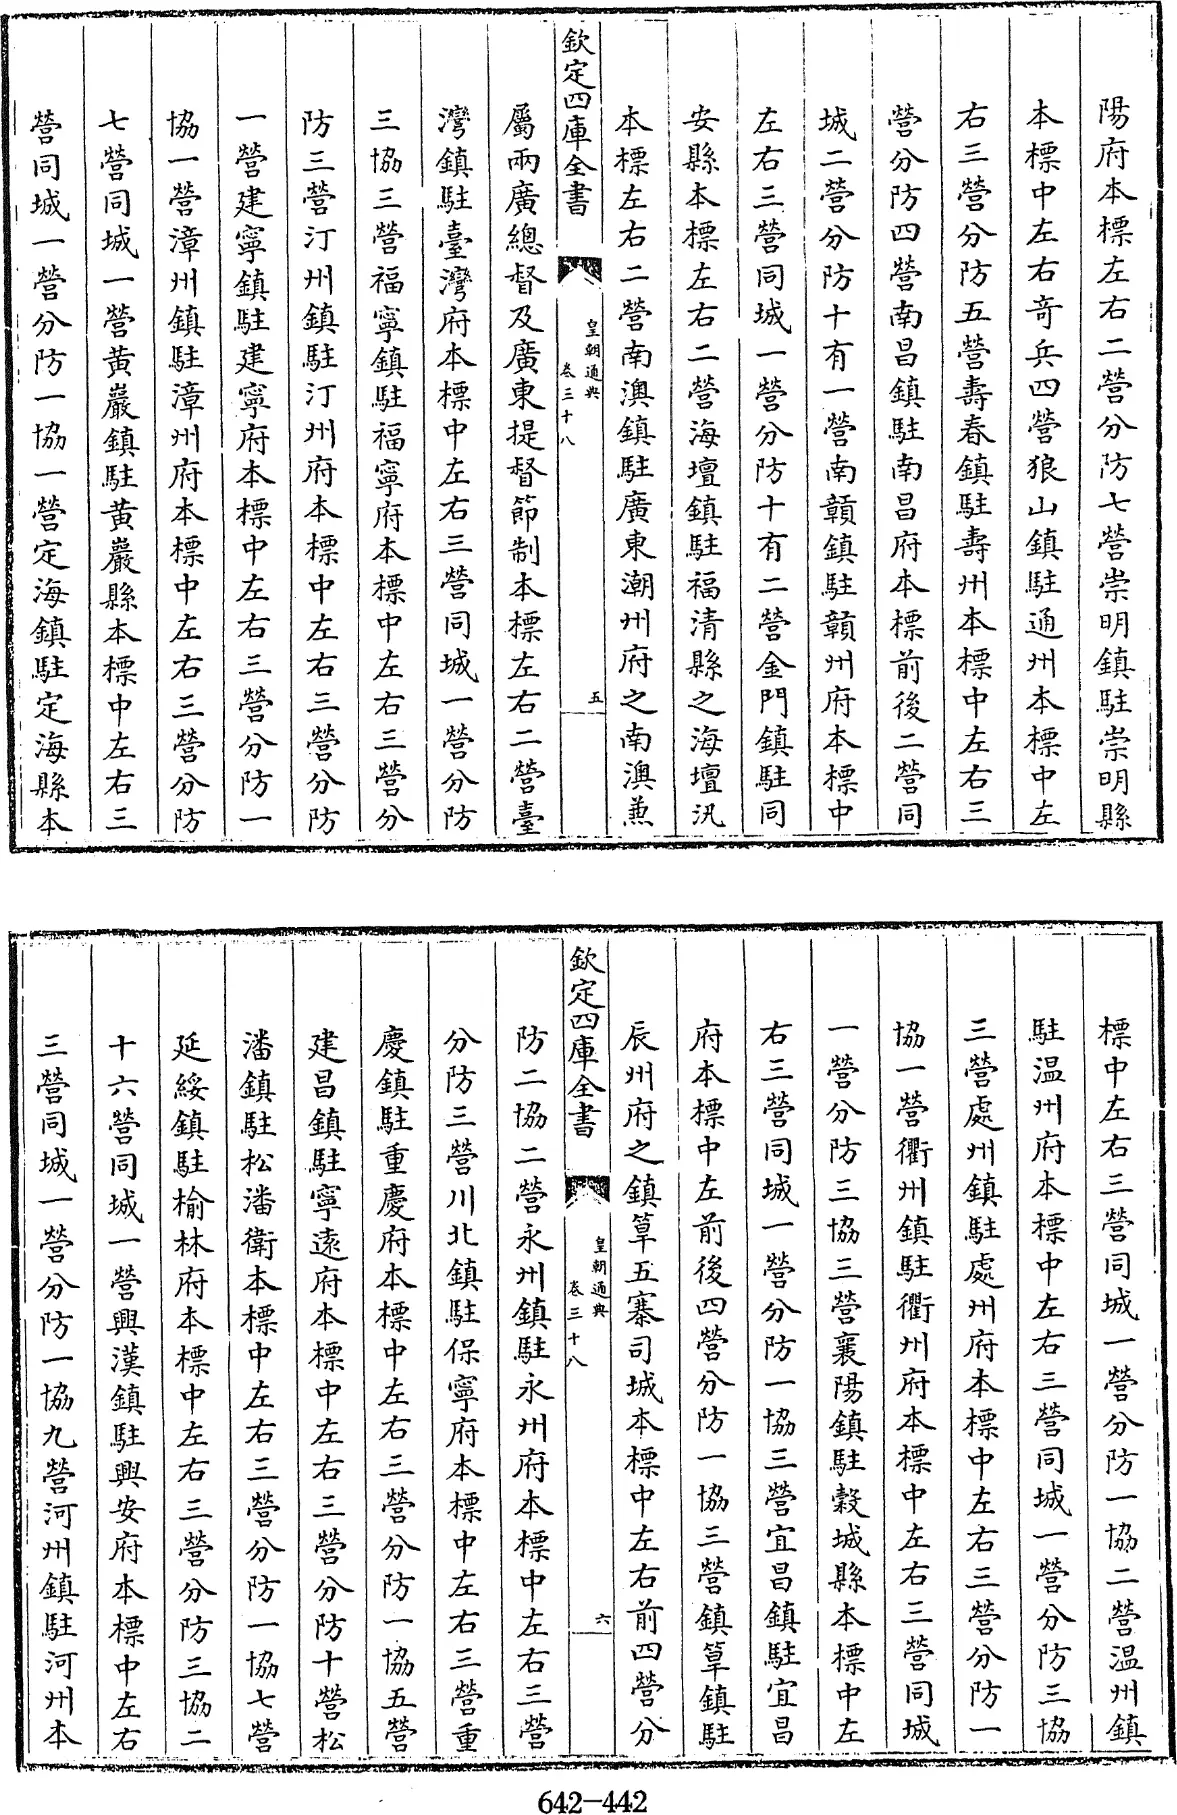 陽府本標左右二營分防七營崇明鎮駐崇明縣
本標中左右奇兵四營狼山鎮駐通州本標中左
右三營分防五營壽春鎮駐壽州本標中左右三
營分防四營南昌鎮駐南昌府本標前後二營同
城二營分防十有一營南贛鎮駐贛州府本標中
左右三營同城一營分防十有二營金門鎮駐同
安縣本標左右二營海壇鎮駐福清縣之海壇汛
本標左右二營南澳鎮駐廣東潮州府之南澳兼
欽定四庫全書
皇朝通典
卷三十八
五
屬兩廣總督及廣東提督節制本標左右二營臺
灣鎮駐臺灣府本標中左右三營同城一營分防
三協三營福寧鎮駐福寧府本標中左右三營分
防三營汀州鎮駐汀州府本標中左右三營分防
一營建寧鎮駐建寧府本標中左右三營分防一
協一營漳州鎮駐漳州府本標中左右三營分防
七營同城一營黄巖鎮駐黄巖縣本標中左右三
營同城一營分防一協一營定海鎮駐定海縣本
標中左右三營同城一營分防一協二營温州鎮
駐温州府本標中左右三營同城一營分防三協
三營處州鎮駐處州府本標中左右三營分防一
協一營衢州鎮駐衢州府本標中左右三營同城
一營分防三協三營襄陽鎮駐穀城縣本標中左
右三營同城一營分防一協三營宜昌鎮駐宜昌
府本標中左前後四營分防一協三營鎮筸鎮駐
辰州府之鎮筸五寨司城本標中左右前四營分
欽定四庫全書
皇朝通典
卷三十八
六
防二協二營永州鎮駐永州府本標中左右三營
分防三營川北鎮駐保寧府本標中左右三營重
慶鎮駐重慶府本標中左右三營分防一協五營
建昌鎮駐寧遠府本標中左右三營分防十營松
潘鎮駐松潘衛本標中左右三營分防一協七營
延綏鎮駐榆林府本標中左右三營分防三協二
十六營同城一營興漢鎮駐興安府本標中左右
三營同城一營分防一協九營河州鎮駐河州本
642-442